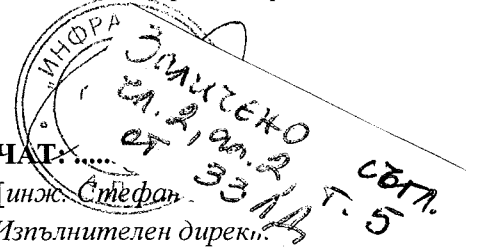 „ИНФРА
Заличено съгл.
чл. 2, ал. 2, т. 5
от ЗЗЛД
ЧАТ: ......
инж. Стефан
Изпълнителен дирек